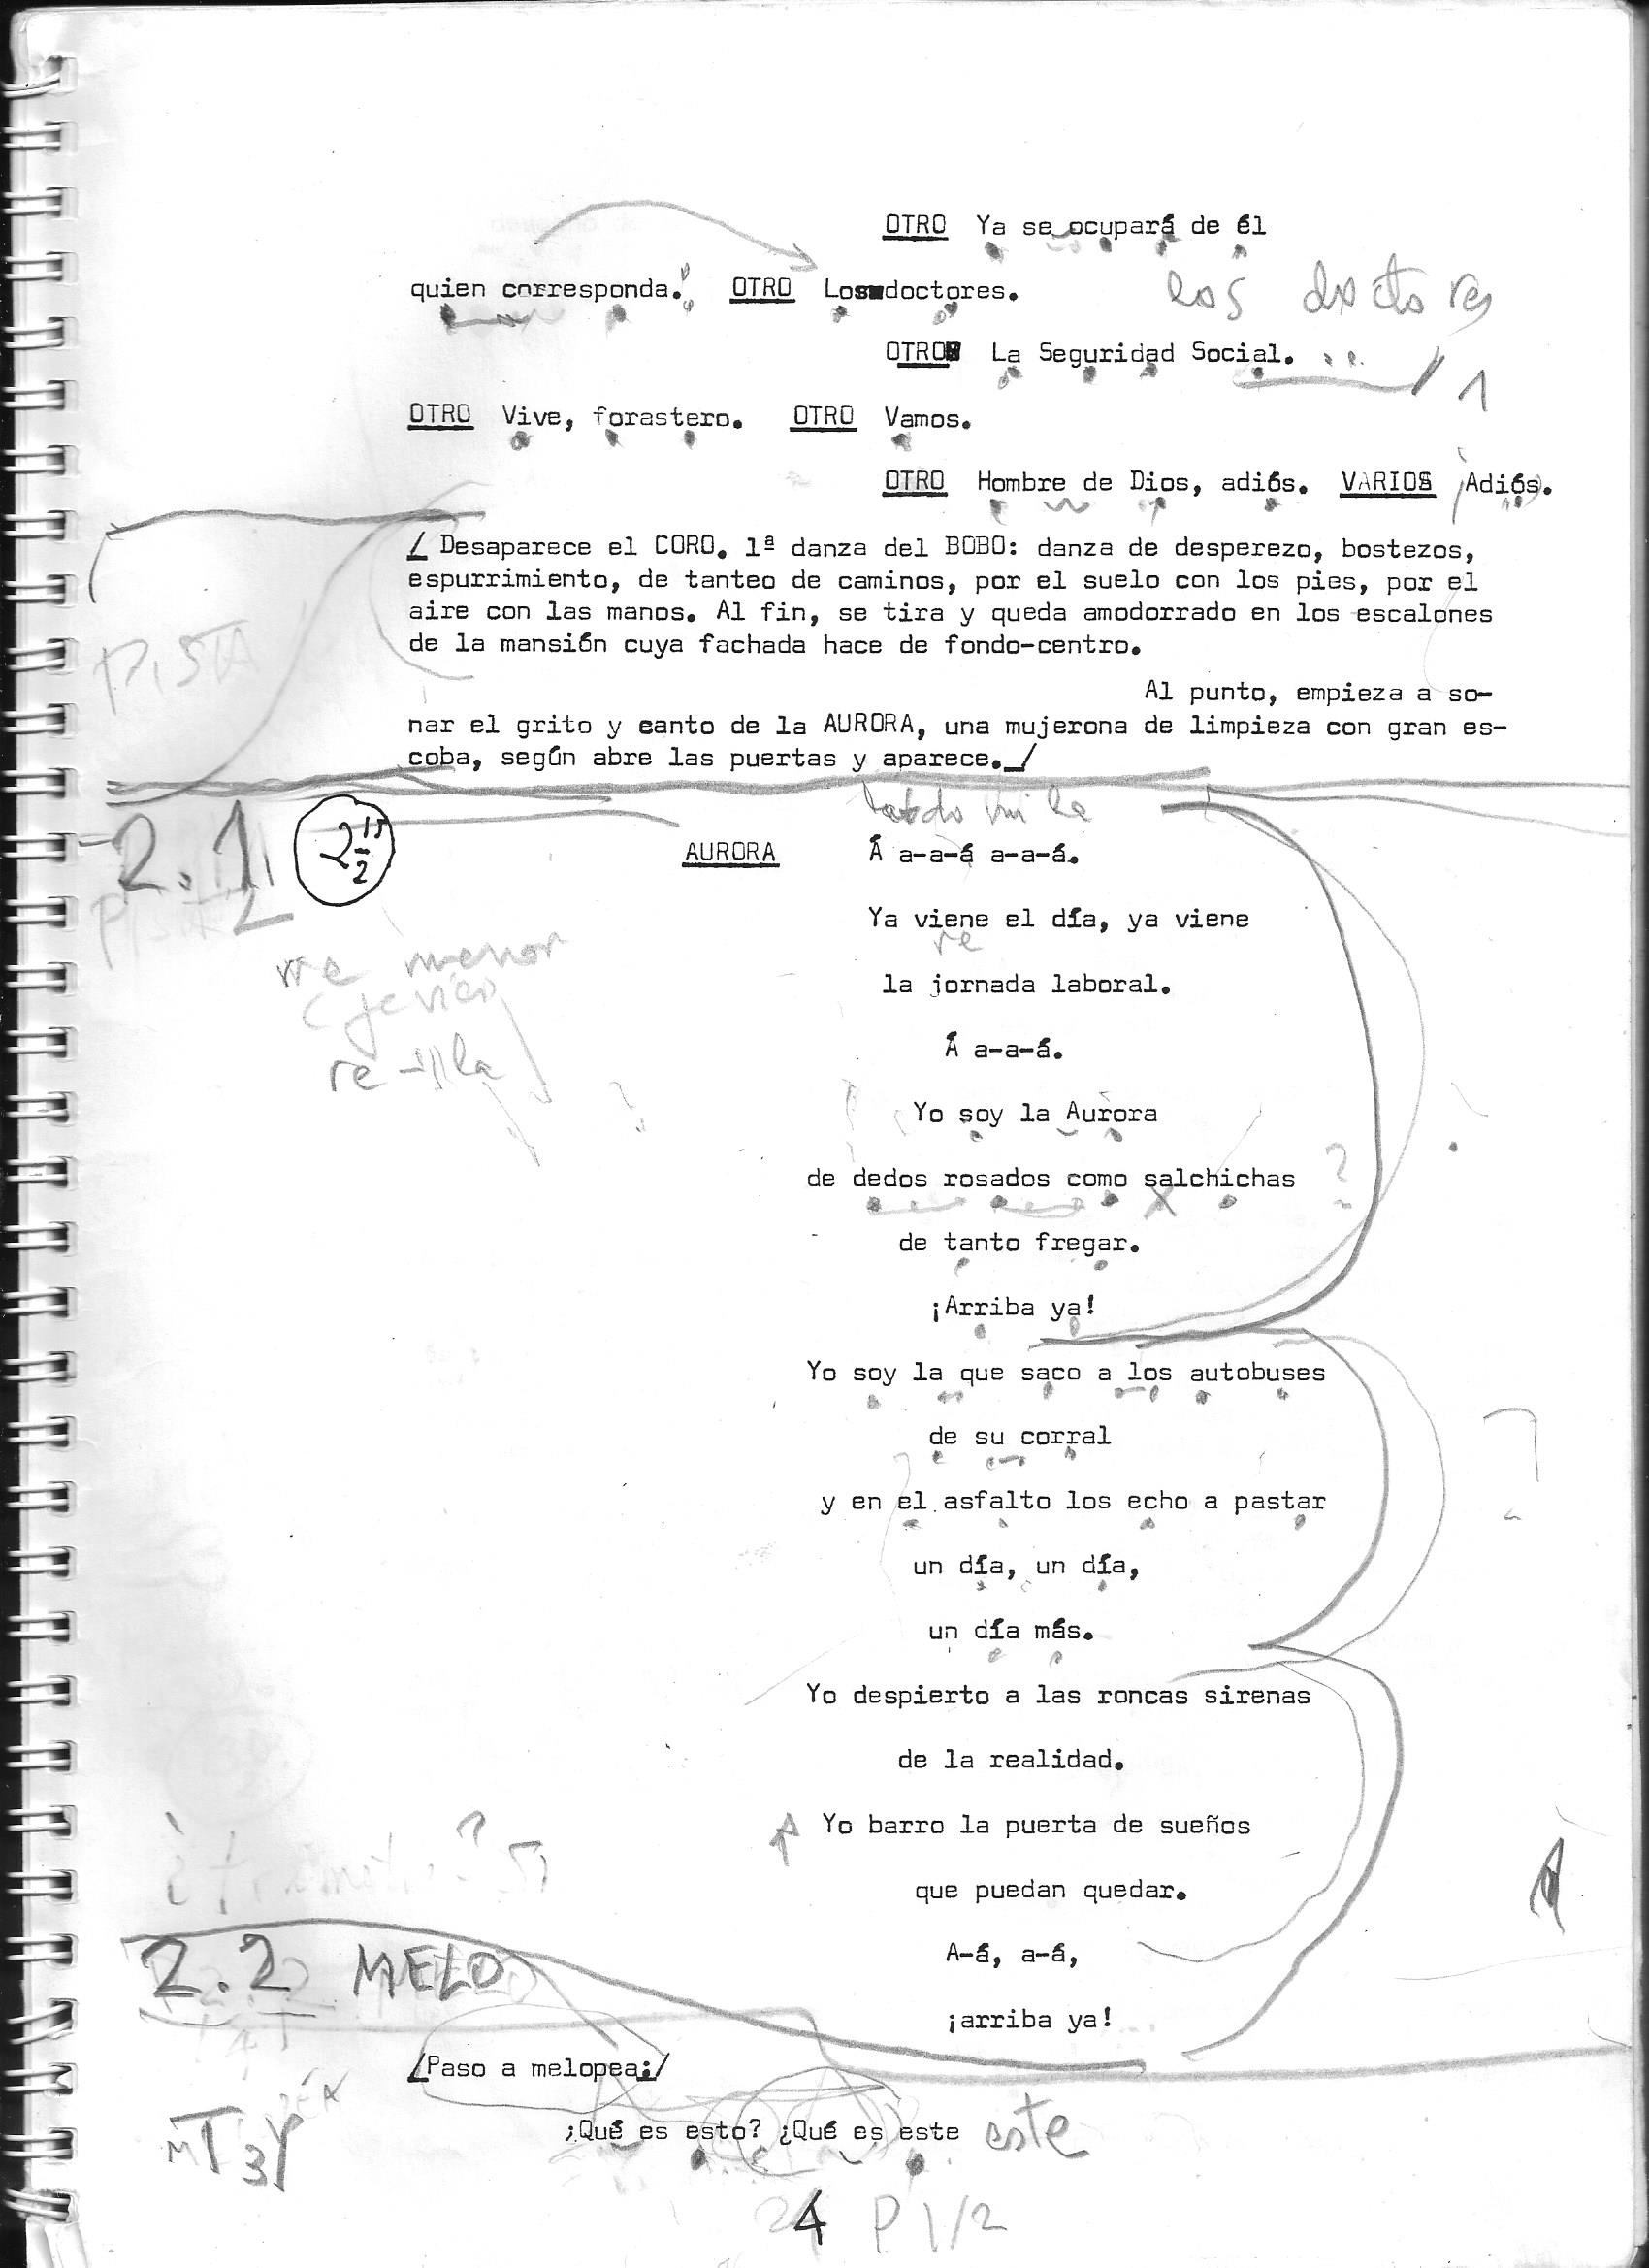 OTRO Ya se ocupará de él
quien corresponda. OTRO Los doctores.
los doctores
OTRO La Seguridad Social. ...
1
OTRO Vive, forastero. OTRO Vamos.
OTRO Hombre de Dios, adiós. VARIOS ¡Adiós.
/ Desaparece el CORO. 1ª danza del BOBO: danza de desperezo, bostezos,
espurrimiento, de tanteo de caminos, por el suelo con los pies, por el
aire con las manos. Al fin, se tira y queda amodorrado en los escalones
de la mansión cuya fachada hace de fondo-centro.
PISTA
Al punto, empieza a so-
nar el grito y canto de la AURORA, una mujerona de limpieza con gran es-
coba, según abre las puertas y aparece./
2.1
AURORA Á a-a-á a-a-á.
Ya viene el día, ya viene
re
re menor
la jornada laboral.
Á a-a-á.
re - la
Yo soy la Aurora
de dedos rosados como salchichas ?
de tanto fregar.
¡Arriba ya!
Yo soy la que saco a los autobuses
de su corral
y en el asfalto los echo a pastar
un día, un día,
un día más.
Yo despierto a las roncas sirenas
de la realidad.
Yo barro la puerta de sueños
que puedan quedar.
A-á, a-á,
2.2 MELO
¡arriba ya!
/Paso a melopea:/
¿Qué es esto? ¿Qué es este este
4 P 1/2